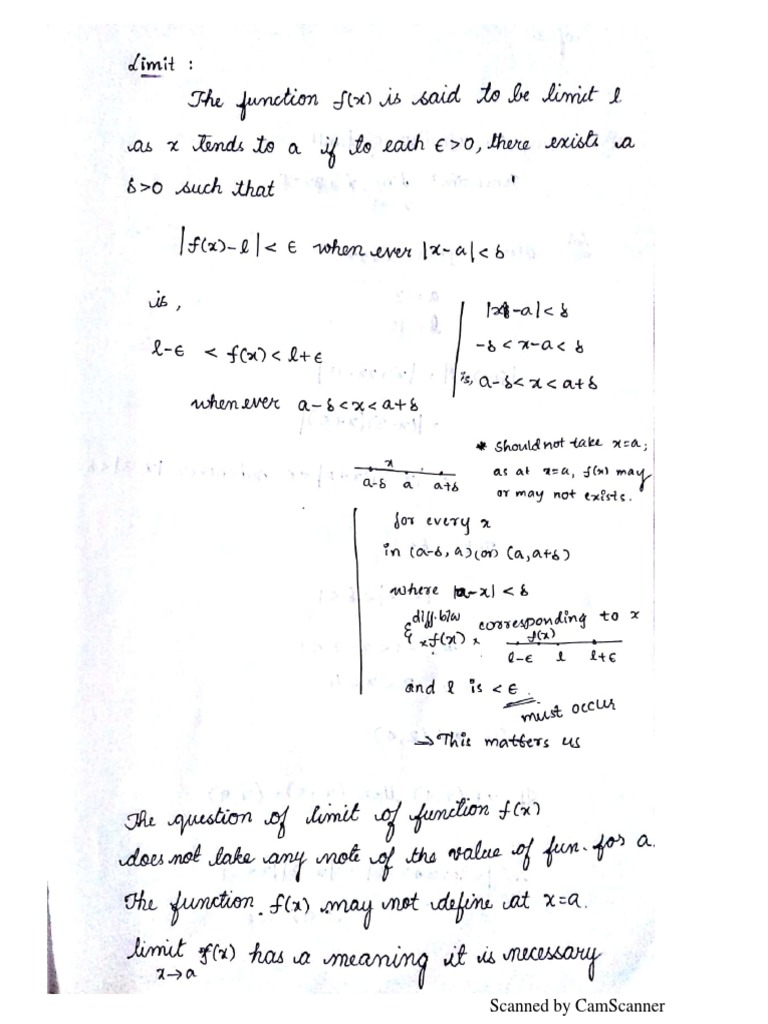 Limit :
The function f(x) is said to be limit l
as x tends to a if to each ϵ>0, there exists a
δ>0 such that
|f(x)-l|< ϵ when ever |x-a|<δ
is,
l-ϵ < f(x)< l+ϵ
when ever a-δ<x<a+δ
|x-a|<δ
-δ < x-a< δ
is, a-δ< x <a+δ
* Should not take x=a;
as at x=a, f(x) may
or may not exists.
x
a-δ a a+δ
for every x
in (a-δ, a) (or) (a, a+δ)
where |a-x| < δ
& diff. b/w f(x) corresponding to x
f(x)
l-ϵ l l+ϵ
and l is < ϵ.
must occur
→ This matters us
The question of limit of function f(x)
does not take any note of the value of fun. for a.
The function. f(x) may not define at x=a.
limit f(x) has a meaning it is necessary
x→a
Scanned by CamScanner